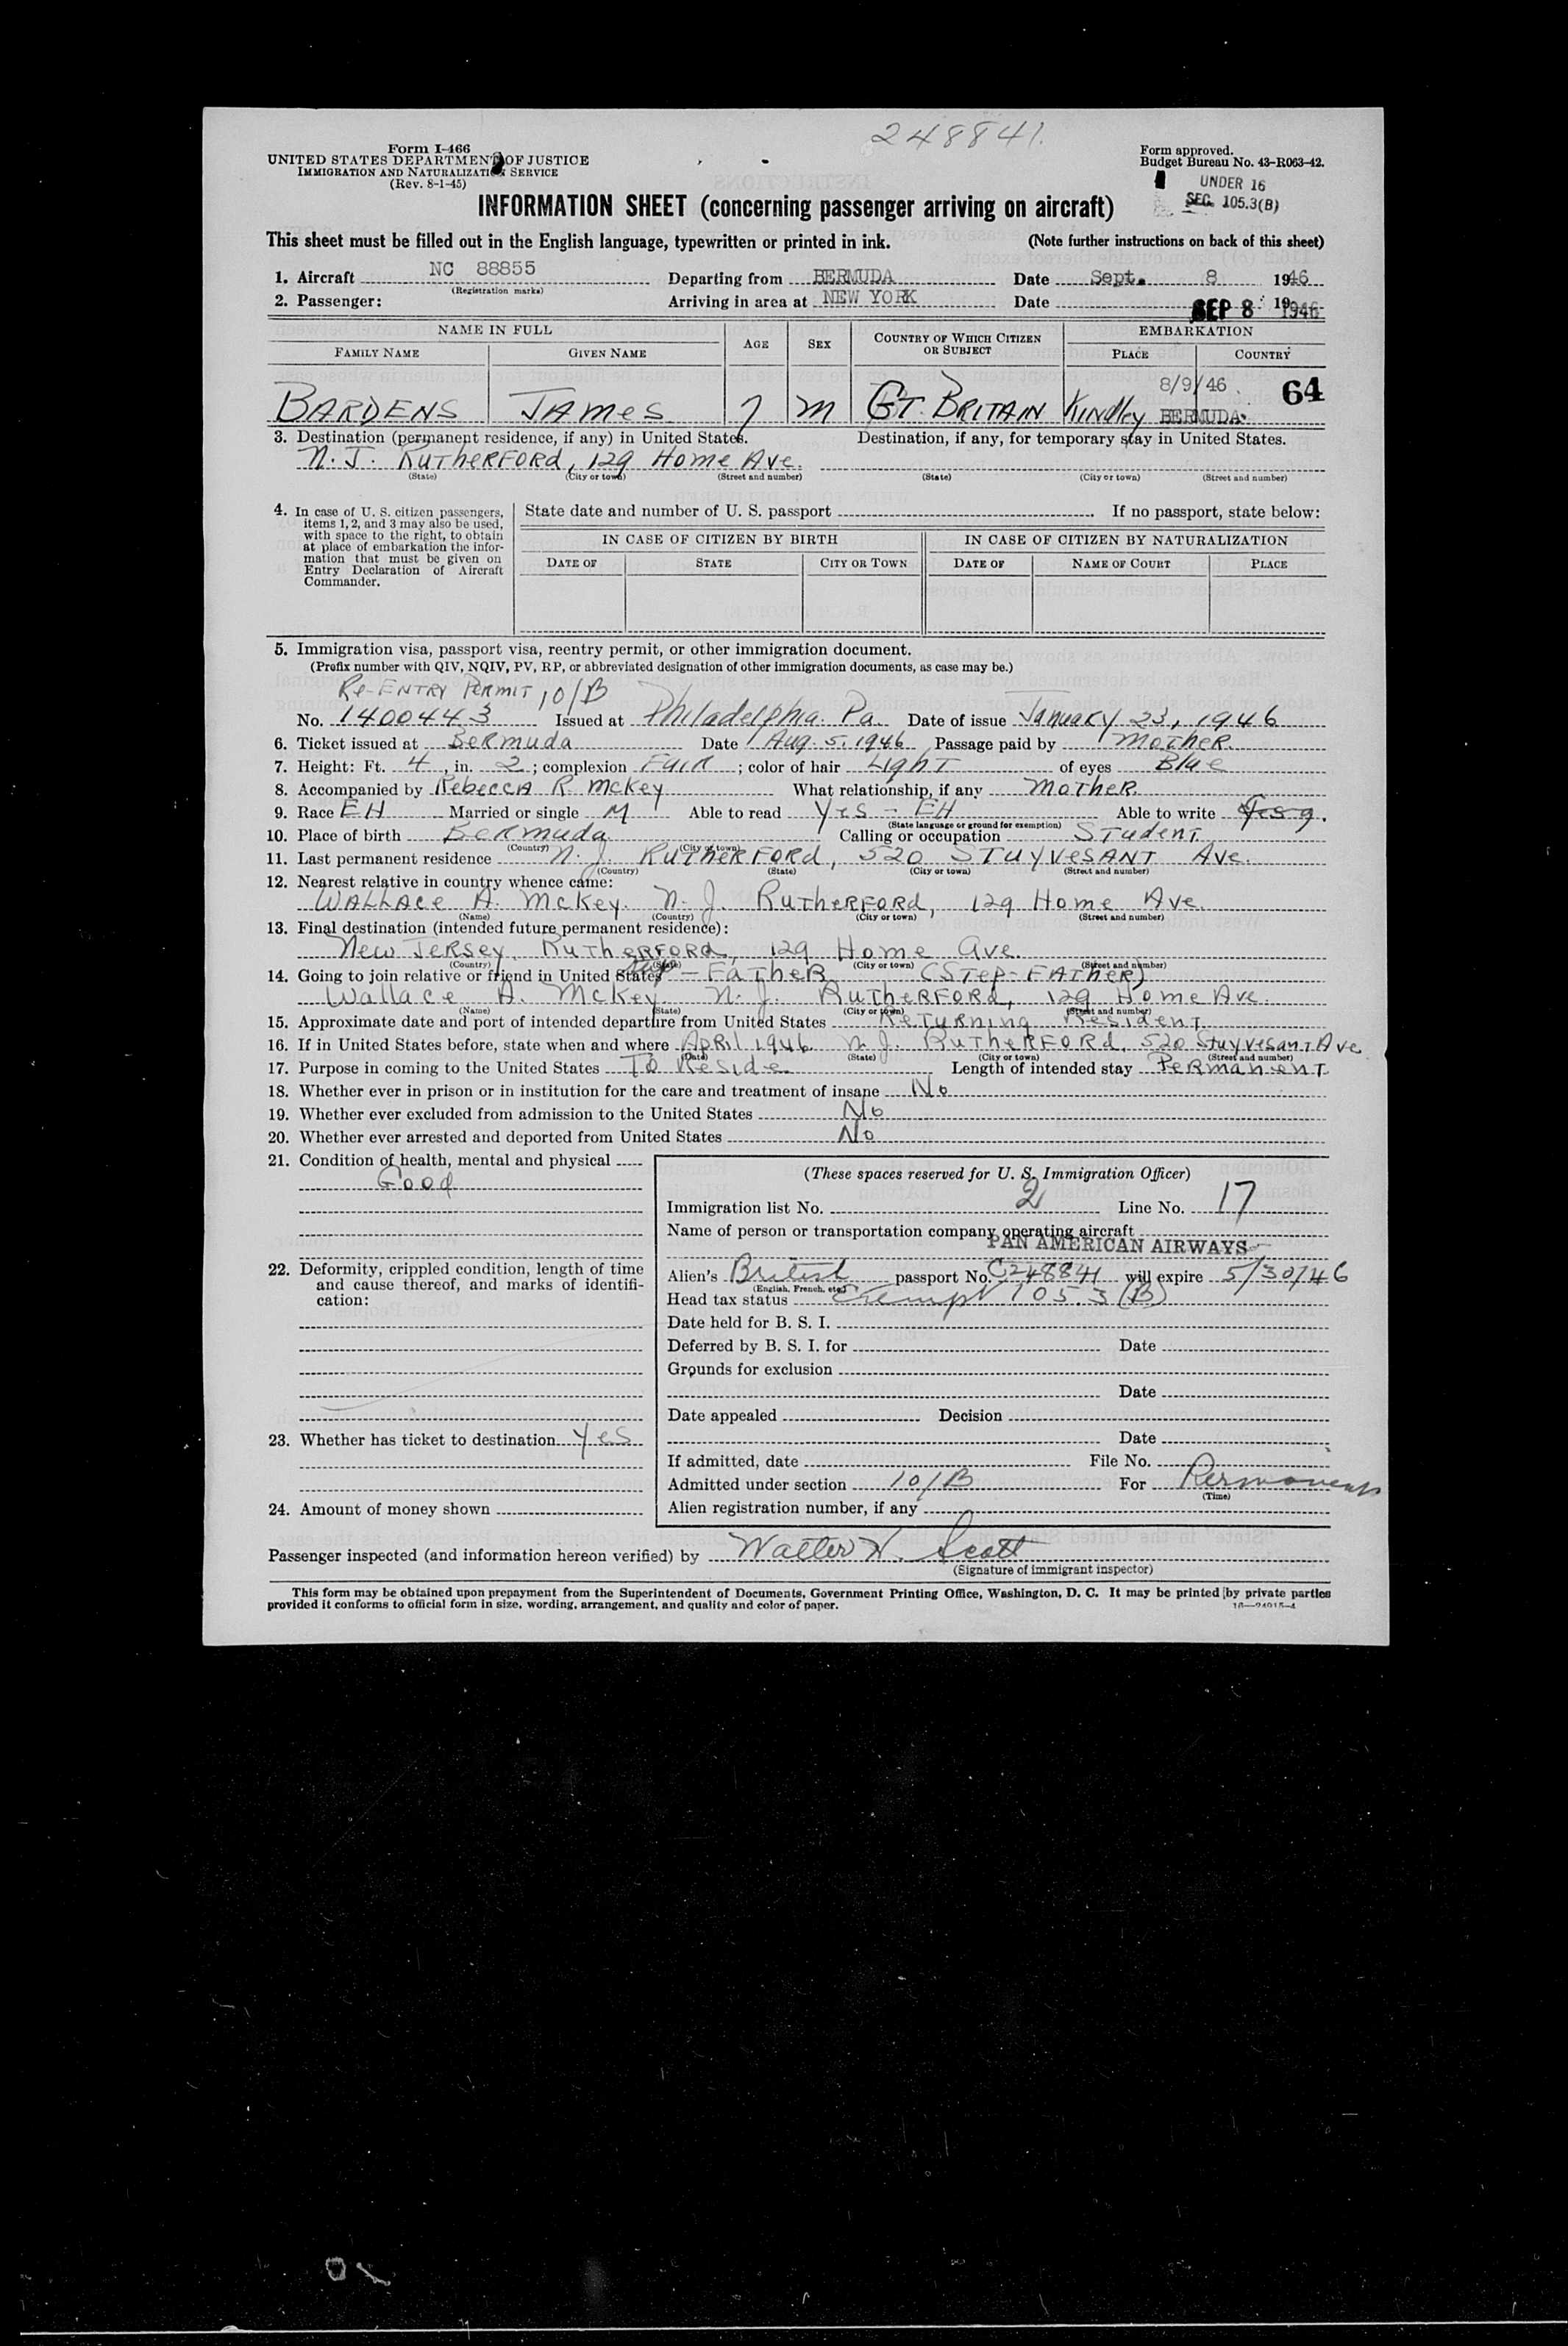 248841.
Form I-466
UNITED STATES DEPARTMENT OF JUSTICE
IMMIGRATION AND NATURALIZATION SERVICE
(Rev. 8-1-45)
Form approved.
Budget Bureau No. 43-R063-42.
UNDER 16
SEC. 105.3(B)
INFORMATION SHEET (concerning passenger arriving on aircraft)
This sheet must be filled out in the English language, typewritten or printed in ink. (Note further instructions on back of this sheet)
1. Aircraft NC 88855 Departing from BERMUDA Date Sept. 8 1946
(Registration marks)
2. Passenger: Arriving in area at NEW YORK Date SEP 8 1946
NAME IN FULL AGE SEX COUNTRY OF WHICH CITIZEN OR SUBJECT EMBARKATION
FAMILY NAME GIVEN NAME PLACE COUNTRY
8/9/46 64
BARDENS JAMES 7 M GT. BRITAIN Kindley BERMUDA
3. Destination (permanent residence, if any) in United States. Destination, if any, for temporary stay in United States.
N.J. RUTHERFORD, 129 Home Ave.
(State) (City or town) (Street and number) (State) (City or town) (Street and number)
4. In case of U. S. citizen passengers, items 1, 2, and 3 may also be used, with space to the right, to obtain at place of embarkation the information that must be given on Entry Declaration of Aircraft Commander.
State date and number of U. S. passport If no passport, state below:
IN CASE OF CITIZEN BY BIRTH IN CASE OF CITIZEN BY NATURALIZATION
DATE OF STATE CITY OR TOWN DATE OF NAME OF COURT PLACE
5. Immigration visa, passport visa, reentry permit, or other immigration document.
(Prefix number with QIV, NQIV, PV, RP, or abbreviated designation of other immigration documents, as case may be.)
Re-ENTRY PERMIT 10/B
No. 1400443 Issued at Philadelphia. Pa. Date of issue January 23, 1946
6. Ticket issued at Bermuda Date Aug. 5. 1946 Passage paid by Mother
7. Height: Ft. 4, in. 2; complexion FAIR; color of hair Light of eyes Blue
8. Accompanied by Rebecca R. McKey What relationship, if any Mother
9. Race EH Married or single M Able to read Yes - EH Able to write Yes
(State language or ground for exemption)
10. Place of birth Bermuda Calling or occupation Student
(Country) (City or town)
11. Last permanent residence N. J. RUTHERFORD, 520 STUYVESANT Ave.
(Country) (State) (City or town) (Street and number)
12. Nearest relative in country whence came:
WALLACE A. McKey. N. J. RUTHERFORD, 129 Home Ave.
(Name) (Country) (City or town) (Street and number)
13. Final destination (intended future permanent residence):
New Jersey, RUTHERFORD, 129 Home Ave.
(Country) (State) (City or town) (Street and number)
14. Going to join relative or friend in United States Step - FATHER (STEP-FATHER)
Wallace A. McKey N. J. RUTHERFORD, 129 Home Ave.
(Name) (State) (City or town) (Street and number)
15. Approximate date and port of intended departure from United States Returning Resident
16. If in United States before, state when and where April 1946 N. J. RUTHERFORD, 520 Stuyvesant Ave
(Date) (State) (City or town) (Street and number)
17. Purpose in coming to the United States To Reside Length of intended stay Permanent
18. Whether ever in prison or in institution for the care and treatment of insane No
19. Whether ever excluded from admission to the United States No
20. Whether ever arrested and deported from United States No
21. Condition of health, mental and physical
Good
22. Deformity, crippled condition, length of time and cause thereof, and marks of identification:
23. Whether has ticket to destination Yes
24. Amount of money shown
(These spaces reserved for U. S. Immigration Officer)
Immigration list No. 2 Line No. 17
Name of person or transportation company operating aircraft
PAN AMERICAN AIRWAYS
Alien's British passport No. C248841 will expire 5/30/46
(English, French, etc.)
Head tax status Exempt 105.3 (B)
Date held for B. S. I.
Deferred by B. S. I. for Date
Grounds for exclusion
Date
Date appealed Decision
Date
If admitted, date File No.
Admitted under section 10/B For Permanent
(Time)
Alien registration number, if any
Passenger inspected (and information hereon verified) by Walter W. Scott
(Signature of immigrant inspector)
This form may be obtained upon prepayment from the Superintendent of Documents, Government Printing Office, Washington, D. C. It may be printed by private parties
provided it conforms to official form in size, wording, arrangement, and quality and color of paper.